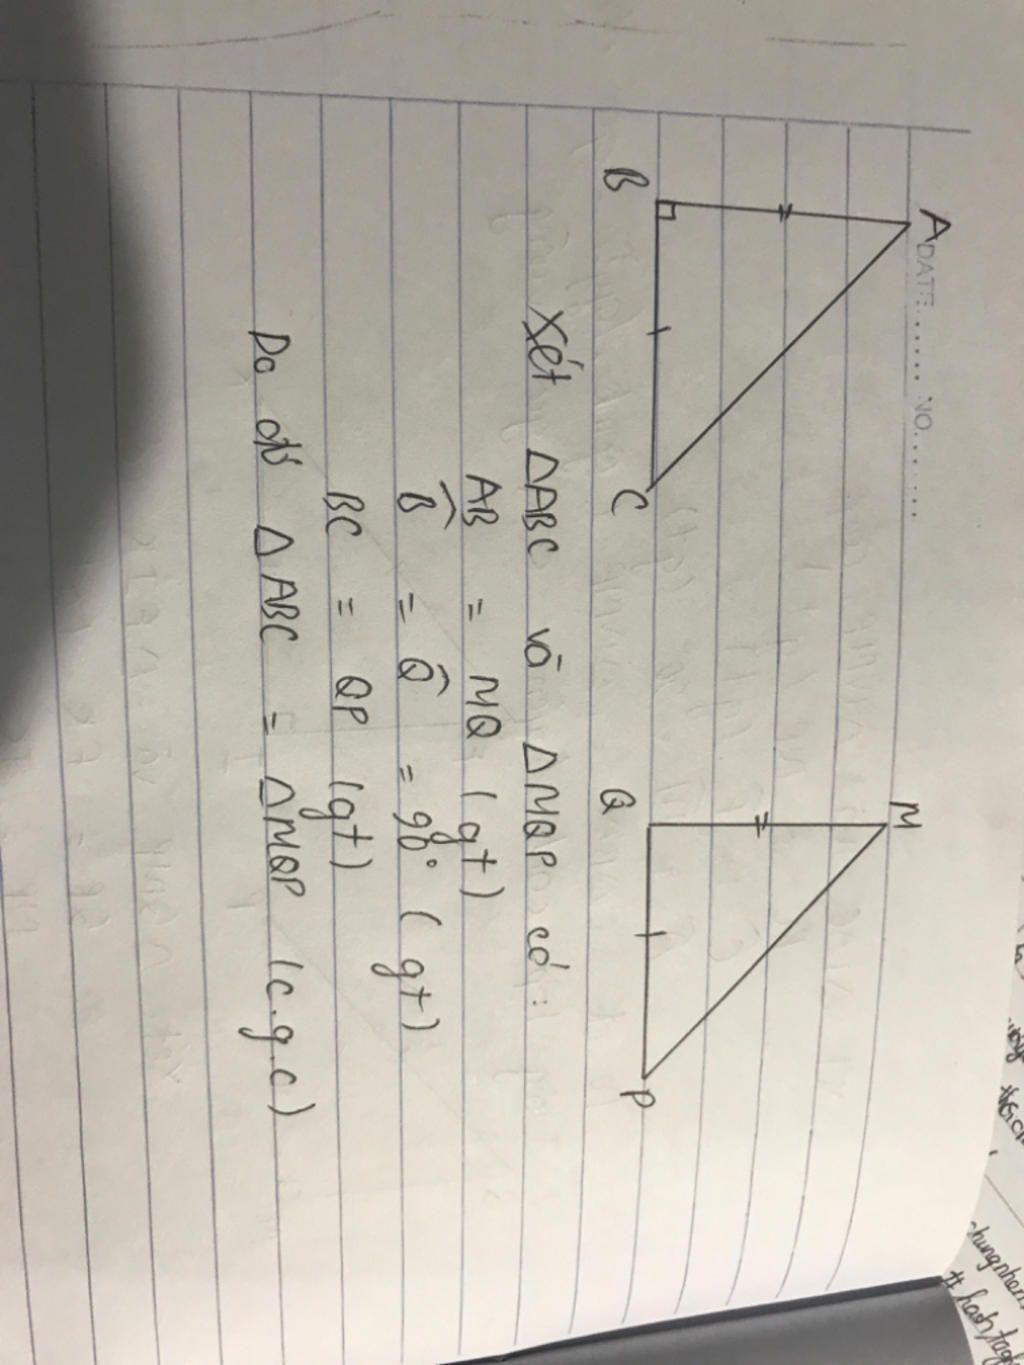 DATE...... NO.......
A M
B C Q P
Xét ΔABC và ΔMQP có:
AB = MQ (gt)
B̂ = Q̂ = 90° (gt)
BC = QP (gt)
Do đó ΔABC = ΔMQP (c.g.c)
# hashtag